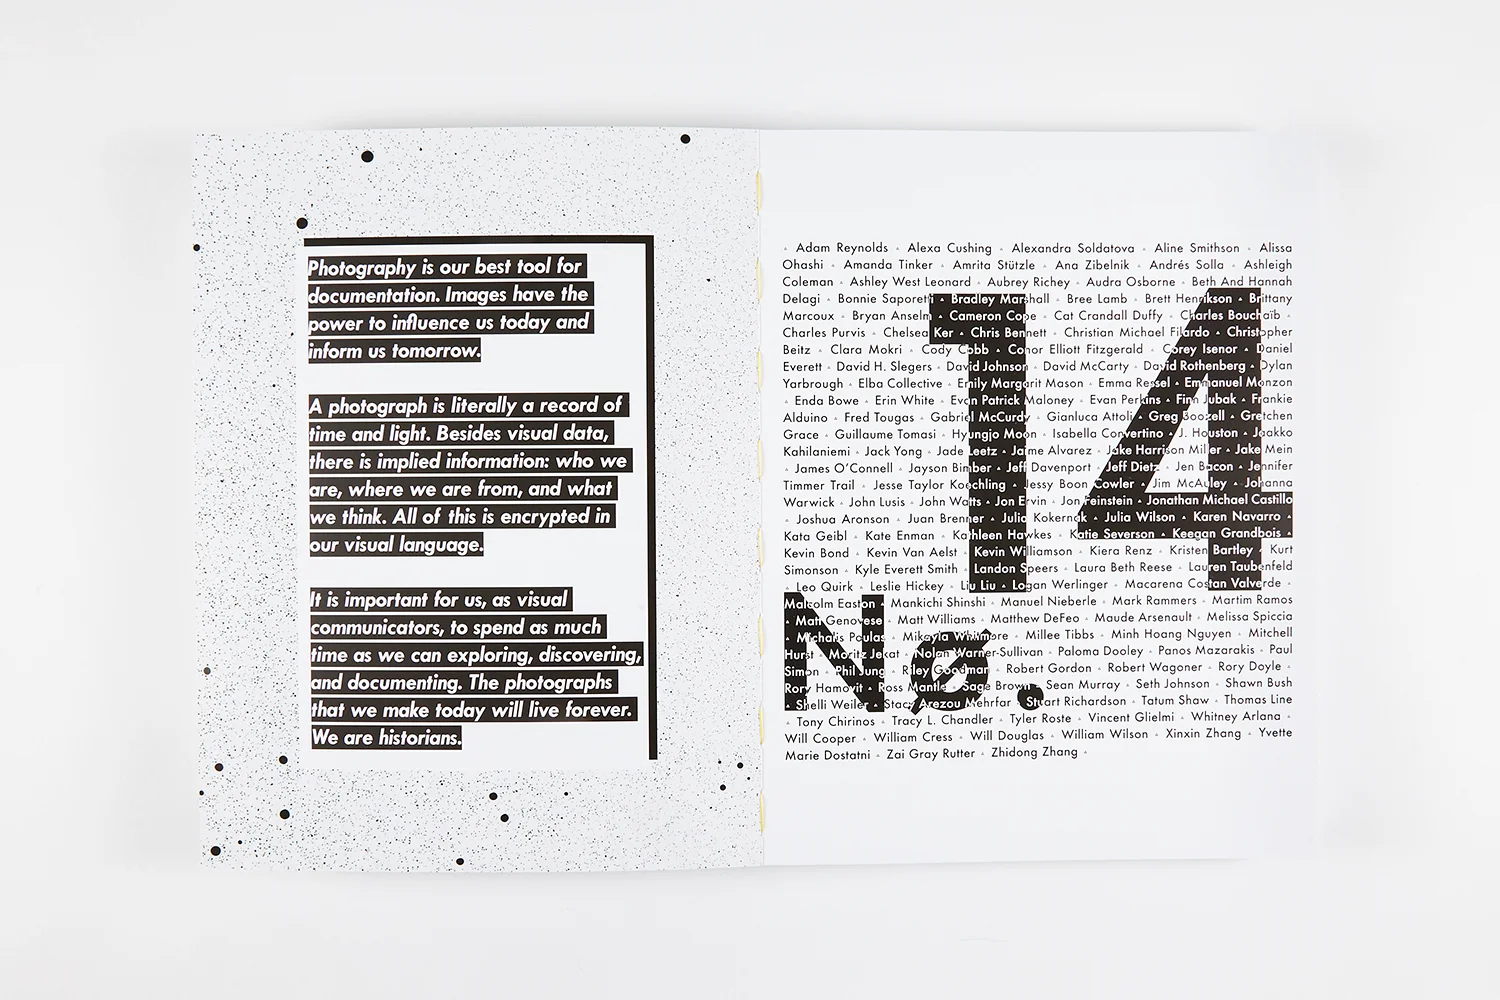 Photography is our best tool for
documentation. Images have the
power to influence us today and
inform us tomorrow.
A photograph is literally a record of
time and light. Besides visual data,
there is implied information: who we
are, where we are from, and what
we think. All of this is encrypted in
our visual language.
It is important for us, as visual
communicators, to spend as much
time as we can exploring, discovering,
and documenting. The photographs
that we make today will live forever.
We are historians.
Adam Reynolds • Alexa Cushing • Alexandra Soldatova • Aline Smithson • Alissa
Ohashi • Amanda Tinker • Amrita Stützle • Ana Zibelnik • Andrés Solla • Ashleigh
Coleman • Ashley West Leonard • Aubrey Richey • Audra Osborne • Beth And Hannah
Delagi • Bonnie Saporetti • Bradley Marshall • Bree Lamb • Brett Henrikson • Brittany
Marcoux • Bryan Anselm • Cameron Cope • Cat Crandall Duffy • Charles Bouchaïb •
Charles Purvis • Chelsea Ker • Chris Bennett • Christian Michael Filardo • Christopher
Beitz • Clara Mokri • Cody Cobb • Conor Elliott Fitzgerald • Corey Isenor • Daniel
Everett • David H. Slegers • David Johnson • David McCarty • David Rothenberg • Dylan
Yarbrough • Elba Collective • Emily Margarit Mason • Emma Ressel • Emmanuel Monzon
• Enda Bowe • Erin White • Evan Patrick Maloney • Evan Perkins • Finn Jubak • Frankie
Alduino • Fred Tougas • Gabriel McCurdy • Gianluca Attoli • Greg Boozell • Gretchen
Grace • Guillaume Tomasi • Hyungjo Moon • Isabella Convertino • J. Houston • Jaakko
Kahilaniemi • Jack Yong • Jade Leetz • Jaime Alvarez • Jake Harrison Miller • Jake Mein
• James O'Connell • Jayson Bimber • Jeff Davenport • Jeff Dietz • Jen Bacon • Jennifer
Timmer Trail • Jesse Taylor Koechling • Jessy Boon Cowler • Jim McAuley • Johanna
Warwick • John Lusis • John Watts • Jon Ervin • Jon Feinstein • Jonathan Michael Castillo
• Joshua Aronson • Juan Brenner • Julia Kokernak • Julia Wilson • Karen Navarro •
Kata Geibl • Kate Enman • Kathleen Hawkes • Katie Severson • Keegan Grandbois •
Kevin Bond • Kevin Van Aelst • Kevin Williamson • Kiera Renz • Kristen Bartley • Kurt
Simonson • Kyle Everett Smith • Landon Speers • Laura Beth Reese • Lauren Taubenfeld
• Leo Quirk • Leslie Hickey • Liu Liu • Logan Werlinger • Macarena Costan Valverde •
Malcolm Easton • Mankichi Shinshi • Manuel Nieberle • Mark Rammers • Martim Ramos
• Matt Genovese • Matt Williams • Matthew DeFeo • Maude Arsenault • Melissa Spiccia
• Michalis Poulas • Mikayla Whitmore • Millee Tibbs • Minh Hoang Nguyen • Mitchell
Hurst • Moritz Jekat • Nolan Warner-Sullivan • Paloma Dooley • Panos Mazarakis • Paul
Simon • Phil Jung • Riley Goodman • Robert Gordon • Robert Wagoner • Rory Doyle •
Rory Hamovit • Ross Mantle • Sage Brown • Sean Murray • Seth Johnson • Shawn Bush
• Shelli Weiler • Stacy Arezou Mehrfar • Stuart Richardson • Tatum Shaw • Thomas Line
• Tony Chirinos • Tracy L. Chandler • Tyler Roste • Vincent Glielmi • Whitney Arlana •
Will Cooper • William Cress • Will Douglas • William Wilson • Xinxin Zhang • Yvette
Marie Dostatni • Zai Gray Rutter • Zhidong Zhang •
14
Nø.